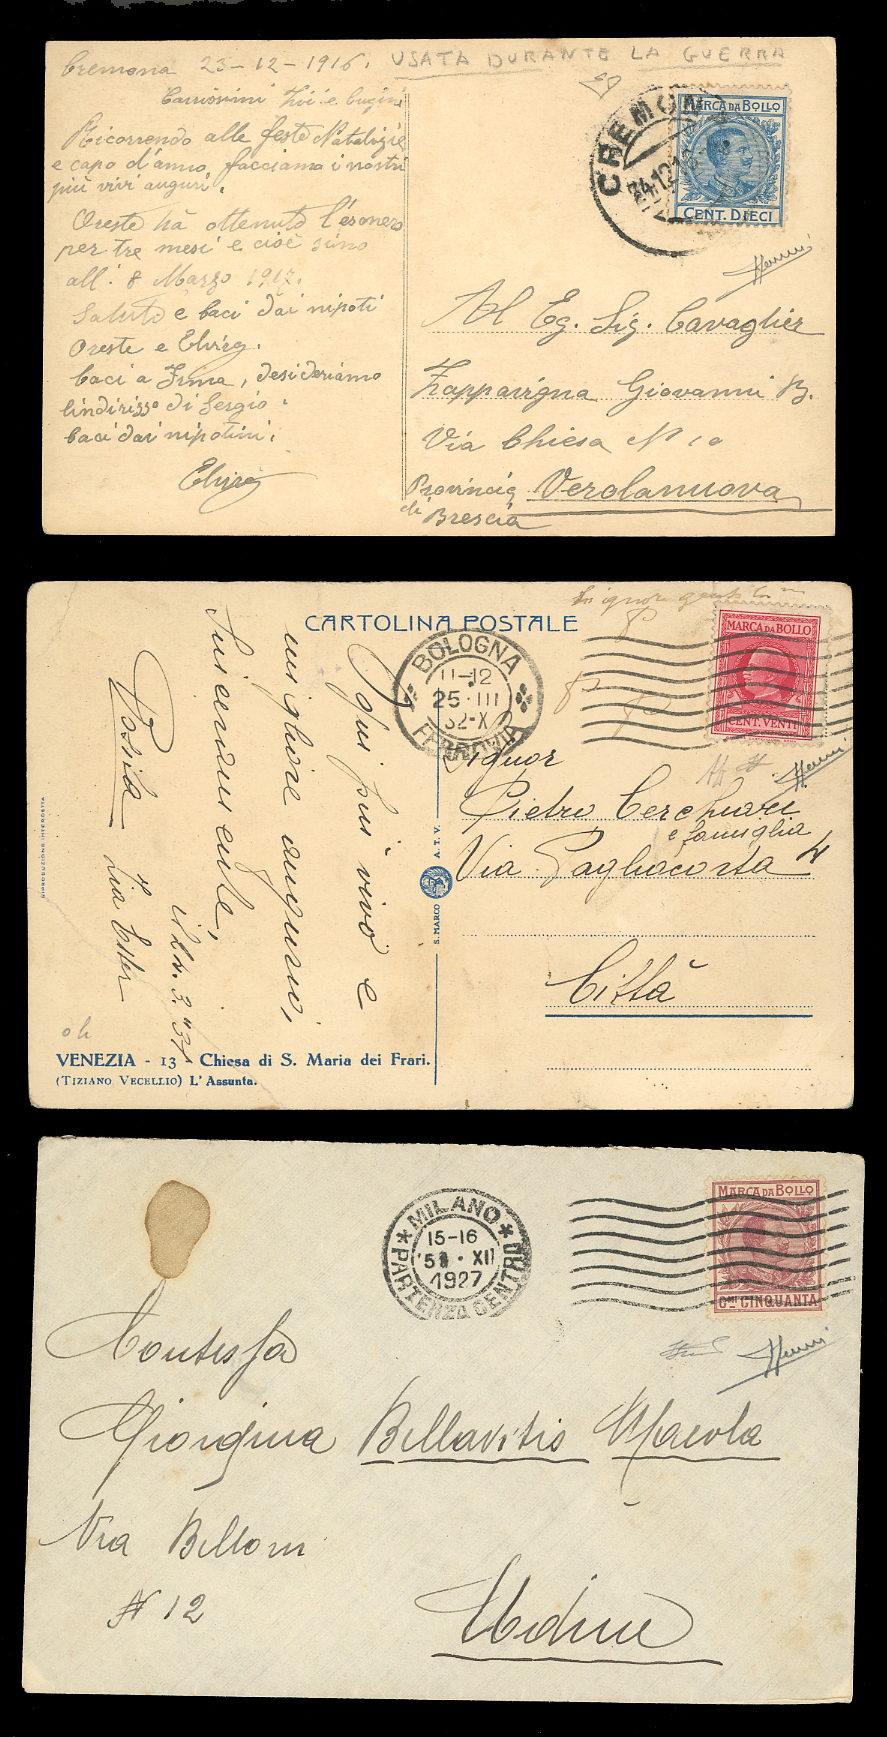 Cremona 23-12-1916.
USATA DURANTE LA GUERRA
Carissimi Zii e Cugini
Ricorrendo alle feste Natalizie
e capo d'anno facciamo i nostri
più vivi auguri.
Oreste ha ottenuto l'esonero
per tre mesi e cioè sino
all'. 8 Marzo 1917.
Saluto e baci dai nipoti
Oreste e Elvira.
baci a Irma, desideriamo
lindirizzo di Sergio.
baci dai nipotini.
Elvira
CREMONA
24.12.1
MARCA DA BOLLO
CENT. DIECI
Al Eg. Sig. Cavaglier
Zappavigna Giovanni B.
Via Chiesa N 10
Provincia Verolanuova
di Brescia
CARTOLINA POSTALE
BOLOGNA
11-12
25 · III
32-X
FERROVIA
MARCA DA BOLLO
CENT. VENTI
Ogni più vivo e
migliore augurio,
sinceramente,
Zia Ester
Signor
Pietro Cerchiari
e famiglia
Via Pagliacorta 4
Città
RIPRODUZIONE INTERDETTA
S. MARCO A. T. V.
VENEZIA - 13 - Chiesa di S. Maria dei Frari.
(TIZIANO VECELLIO) L'Assunta.
MILANO
15-16
XII
1927
PARTENZA CENTRO
MARCA DA BOLLO
CMI CINQUANTA
Contessa
Giorgina Bellavitis Macola
Via Belloni
N 12
Udine